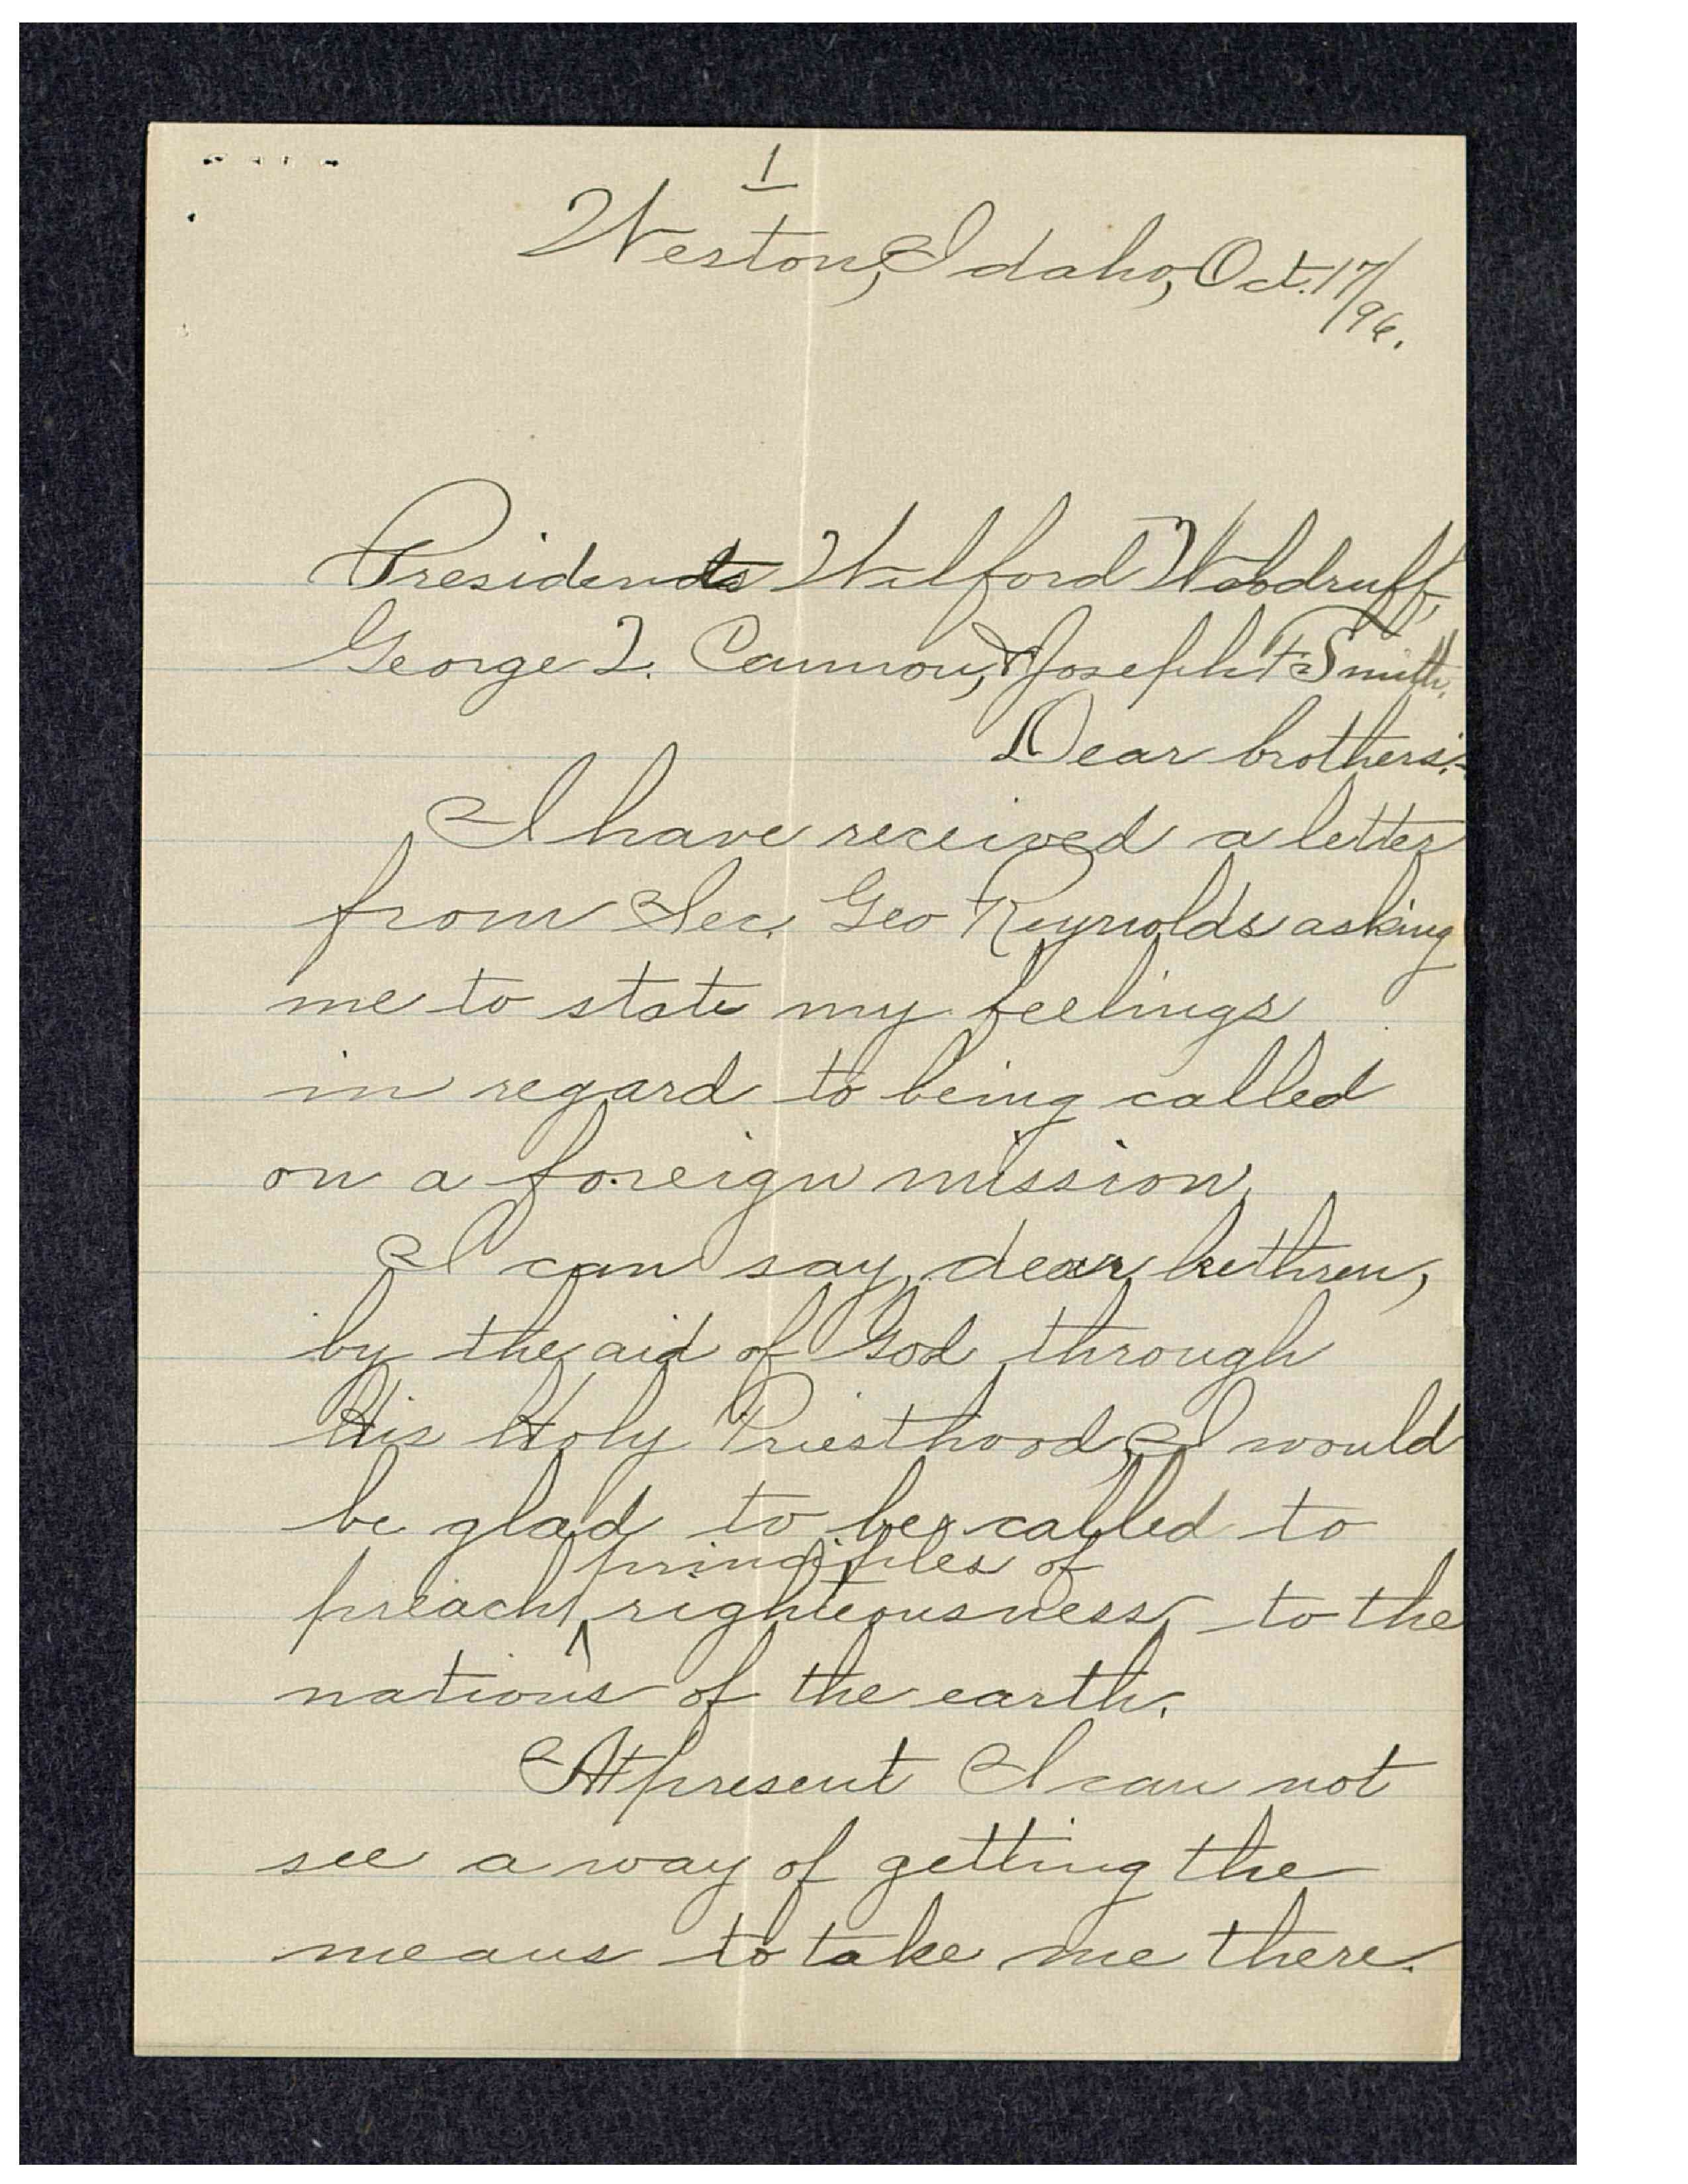 1
Weston, Idaho, Oct. 17/96.
Presidents Wilford Woodruff,
George Q. Cannon, & Joseph F Smith.
Dear brothers:-
I have received a letter
from Sec. Geo Reynolds asking
me to state my feelings
in regard to being called
on a foreign mission.
I can say, dear brethren,
by the aid of God through
His Holy Priesthood, I would
be glad to be called to
principles of
preach ^ righteousness to the
nations of the earth.
At present I can not
see a way of getting the
means to take me there.